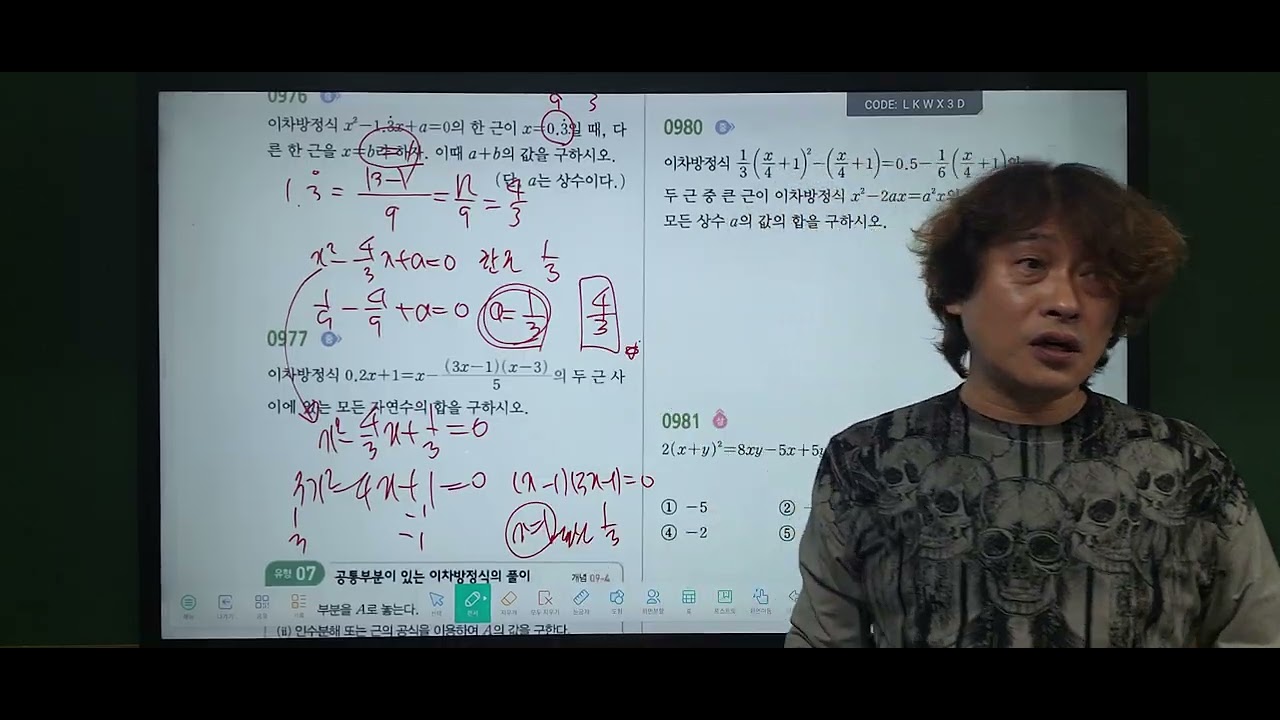 0976 중
이차방정식 x²−1.3̇x+a=0의 한 근이 x=0.3̇일 때, 다
른 한 근을 x=b라 하자. 이때 a+b의 값을 구하시오.
(단, a는 상수이다.)
9 3
1.3̇ = 13-1/9 = 12/9 = 4/3
x² - 4/3 x + a = 0 한근 1/3
1/9 - 4/9 + a = 0 a = 1/3 4/3
0977 중
이차방정식 0.2x+1=x−(3x−1)(x−3)/5의 두 근 사
이에 있는 모든 자연수의 합을 구하시오.
x² - 4/3 x + 1/3 = 0
3x² - 4x + 1 = 0 (x-1)(3x-1) = 0
1 -1
3 -1
x=1 또는 1/3
유형 07 공통부분이 있는 이차방정식의 풀이 개념 09-4
부분을 A로 놓는다.
(ii) 인수분해 또는 근의 공식을 이용하여 A의 값을 구한다.
CODE: LKWX3D
0980 중
이차방정식 1/3(x/4+1)²−(x/4+1)=0.5−1/6(x/4+1)의
두 근 중 큰 근이 이차방정식 x²−2ax=a²x
모든 상수 a의 값의 합을 구하시오.
0981 상
2(x+y)²=8xy−5x+5y
① −5 ②
④ −2 ⑤